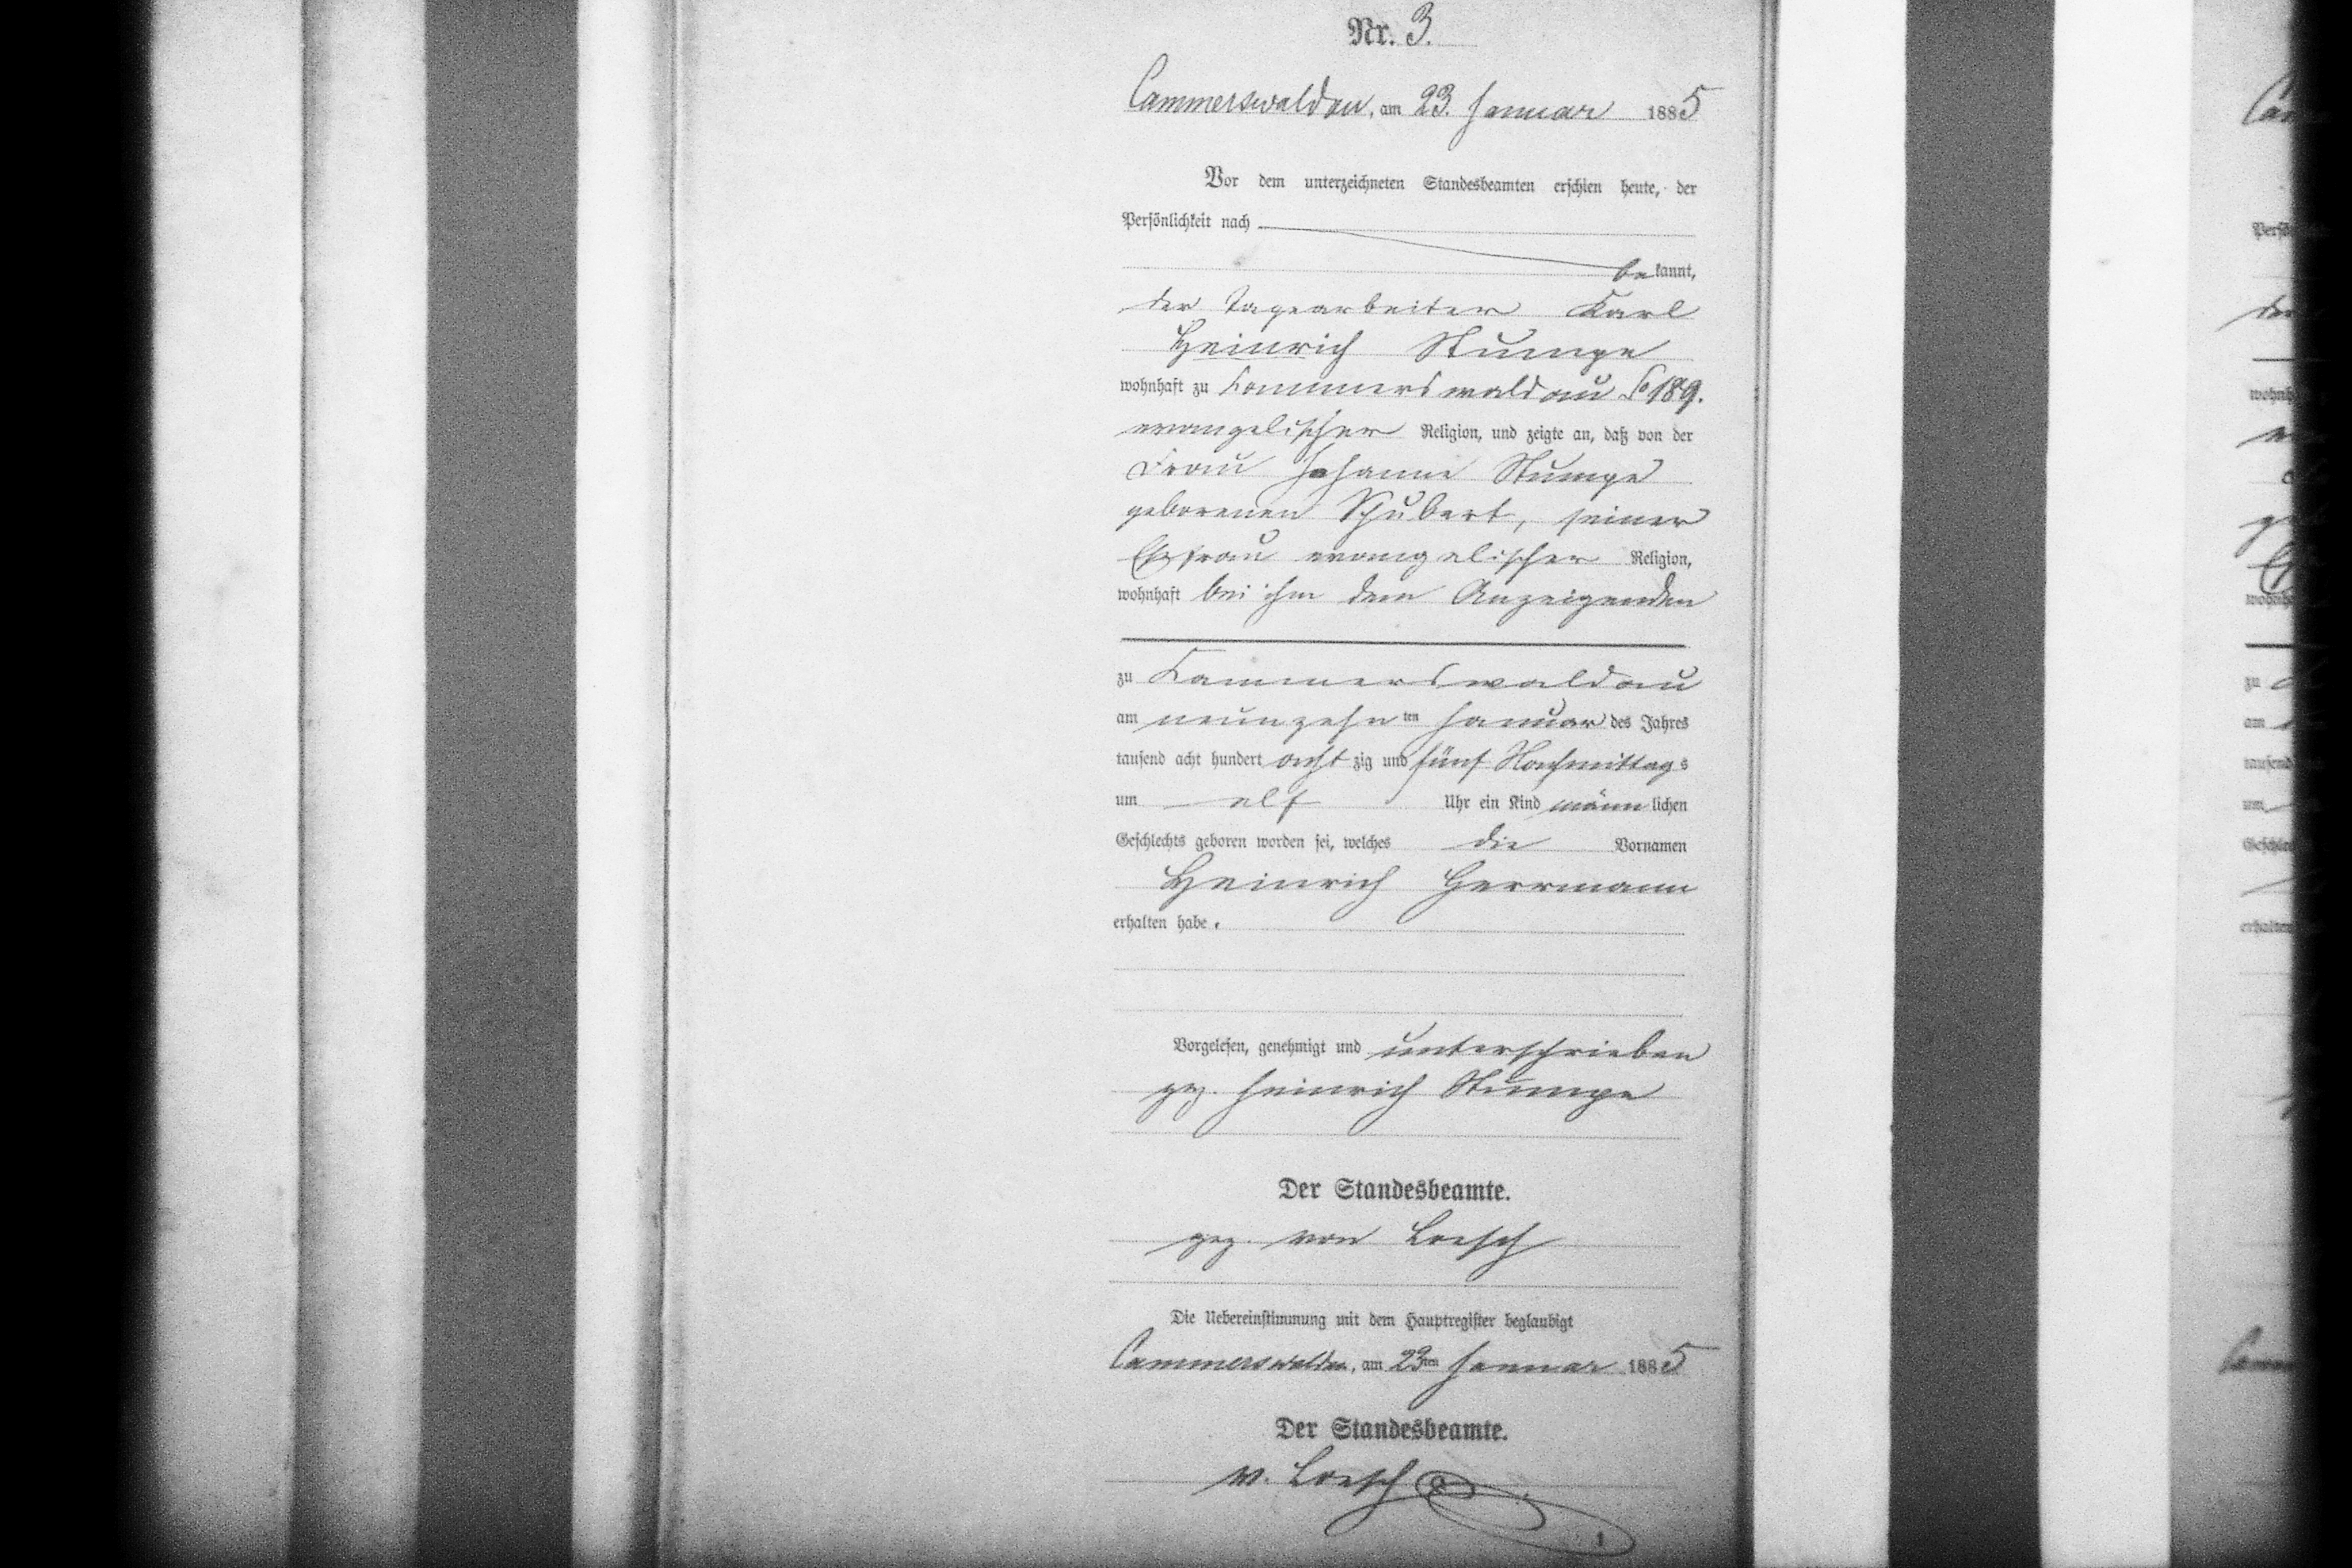 Nr. 3.
Cammerswaldau, am 23. Januar 1885
Vor dem unterzeichneten Standesbeamten erschien heute, der
Persönlichkeit nach
bekannt,
der Tagearbeiter Karl
Heinrich Stumpe
wohnhaft zu Kammerswaldau 189.
evangelischer Religion, und zeigte an, daß von der
Frau Johanne Stumpe
geborenen Schubert, seiner
Ehefrau evangelischer Religion,
wohnhaft bei ihm dem Anzeigenden
zu Kammerswaldau
am neunzehnten Januar des Jahres
tausend acht hundert achtzig und fünf Nachmittags
um elf Uhr ein Kind männlichen
Geschlechts geboren worden sei, welches die Vornamen
Heinrich Herrmann
erhalten habe.
Vorgelesen, genehmigt und unterschrieben
gez. Heinrich Stumpe
Der Standesbeamte.
gez. von Loesch
Die Uebereinstimmung mit dem Hauptregister beglaubigt
Cammerswaldau, am 23ten Januar 1885
Der Standesbeamte.
v. Loesch